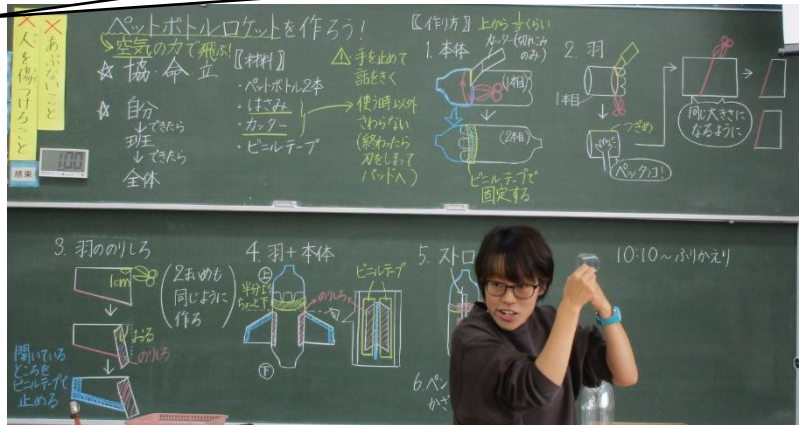 ×あぶないこと
×人を傷つけること
結果
100
ペットボトルロケットを作ろう！
空気の力で飛ぶ！
☆協・命・立
☆自分
↓できたら
班
↓できたら
全体
【材料】
・ペットボトル2本
・はさみ
・カッター
・ビニルテープ
⚠手を止めて
話をきく
使う時以外
さわらない
(終わったら
刃をしまって
パッドへ)
【作り方】上から1/3くらい
カッター(切れこみ
のみ)
1.本体
(1本目)
(2本目)
ビニルテープで
固定する
2.羽
1本目
つぎめ
ペッタンコ！
同じ大きさに
なるように
3.羽ののりしろ
1cm
(2まいめも
同じように
作る)
おる
のりしろ
開いている
ところを
ビニルテープで
止める
4.羽+本体
上
半分より
ちょっと下
のりしろ
下
ビニルテープ
5.ストロ
6.ペン
かざ
10:10～ふりかえり